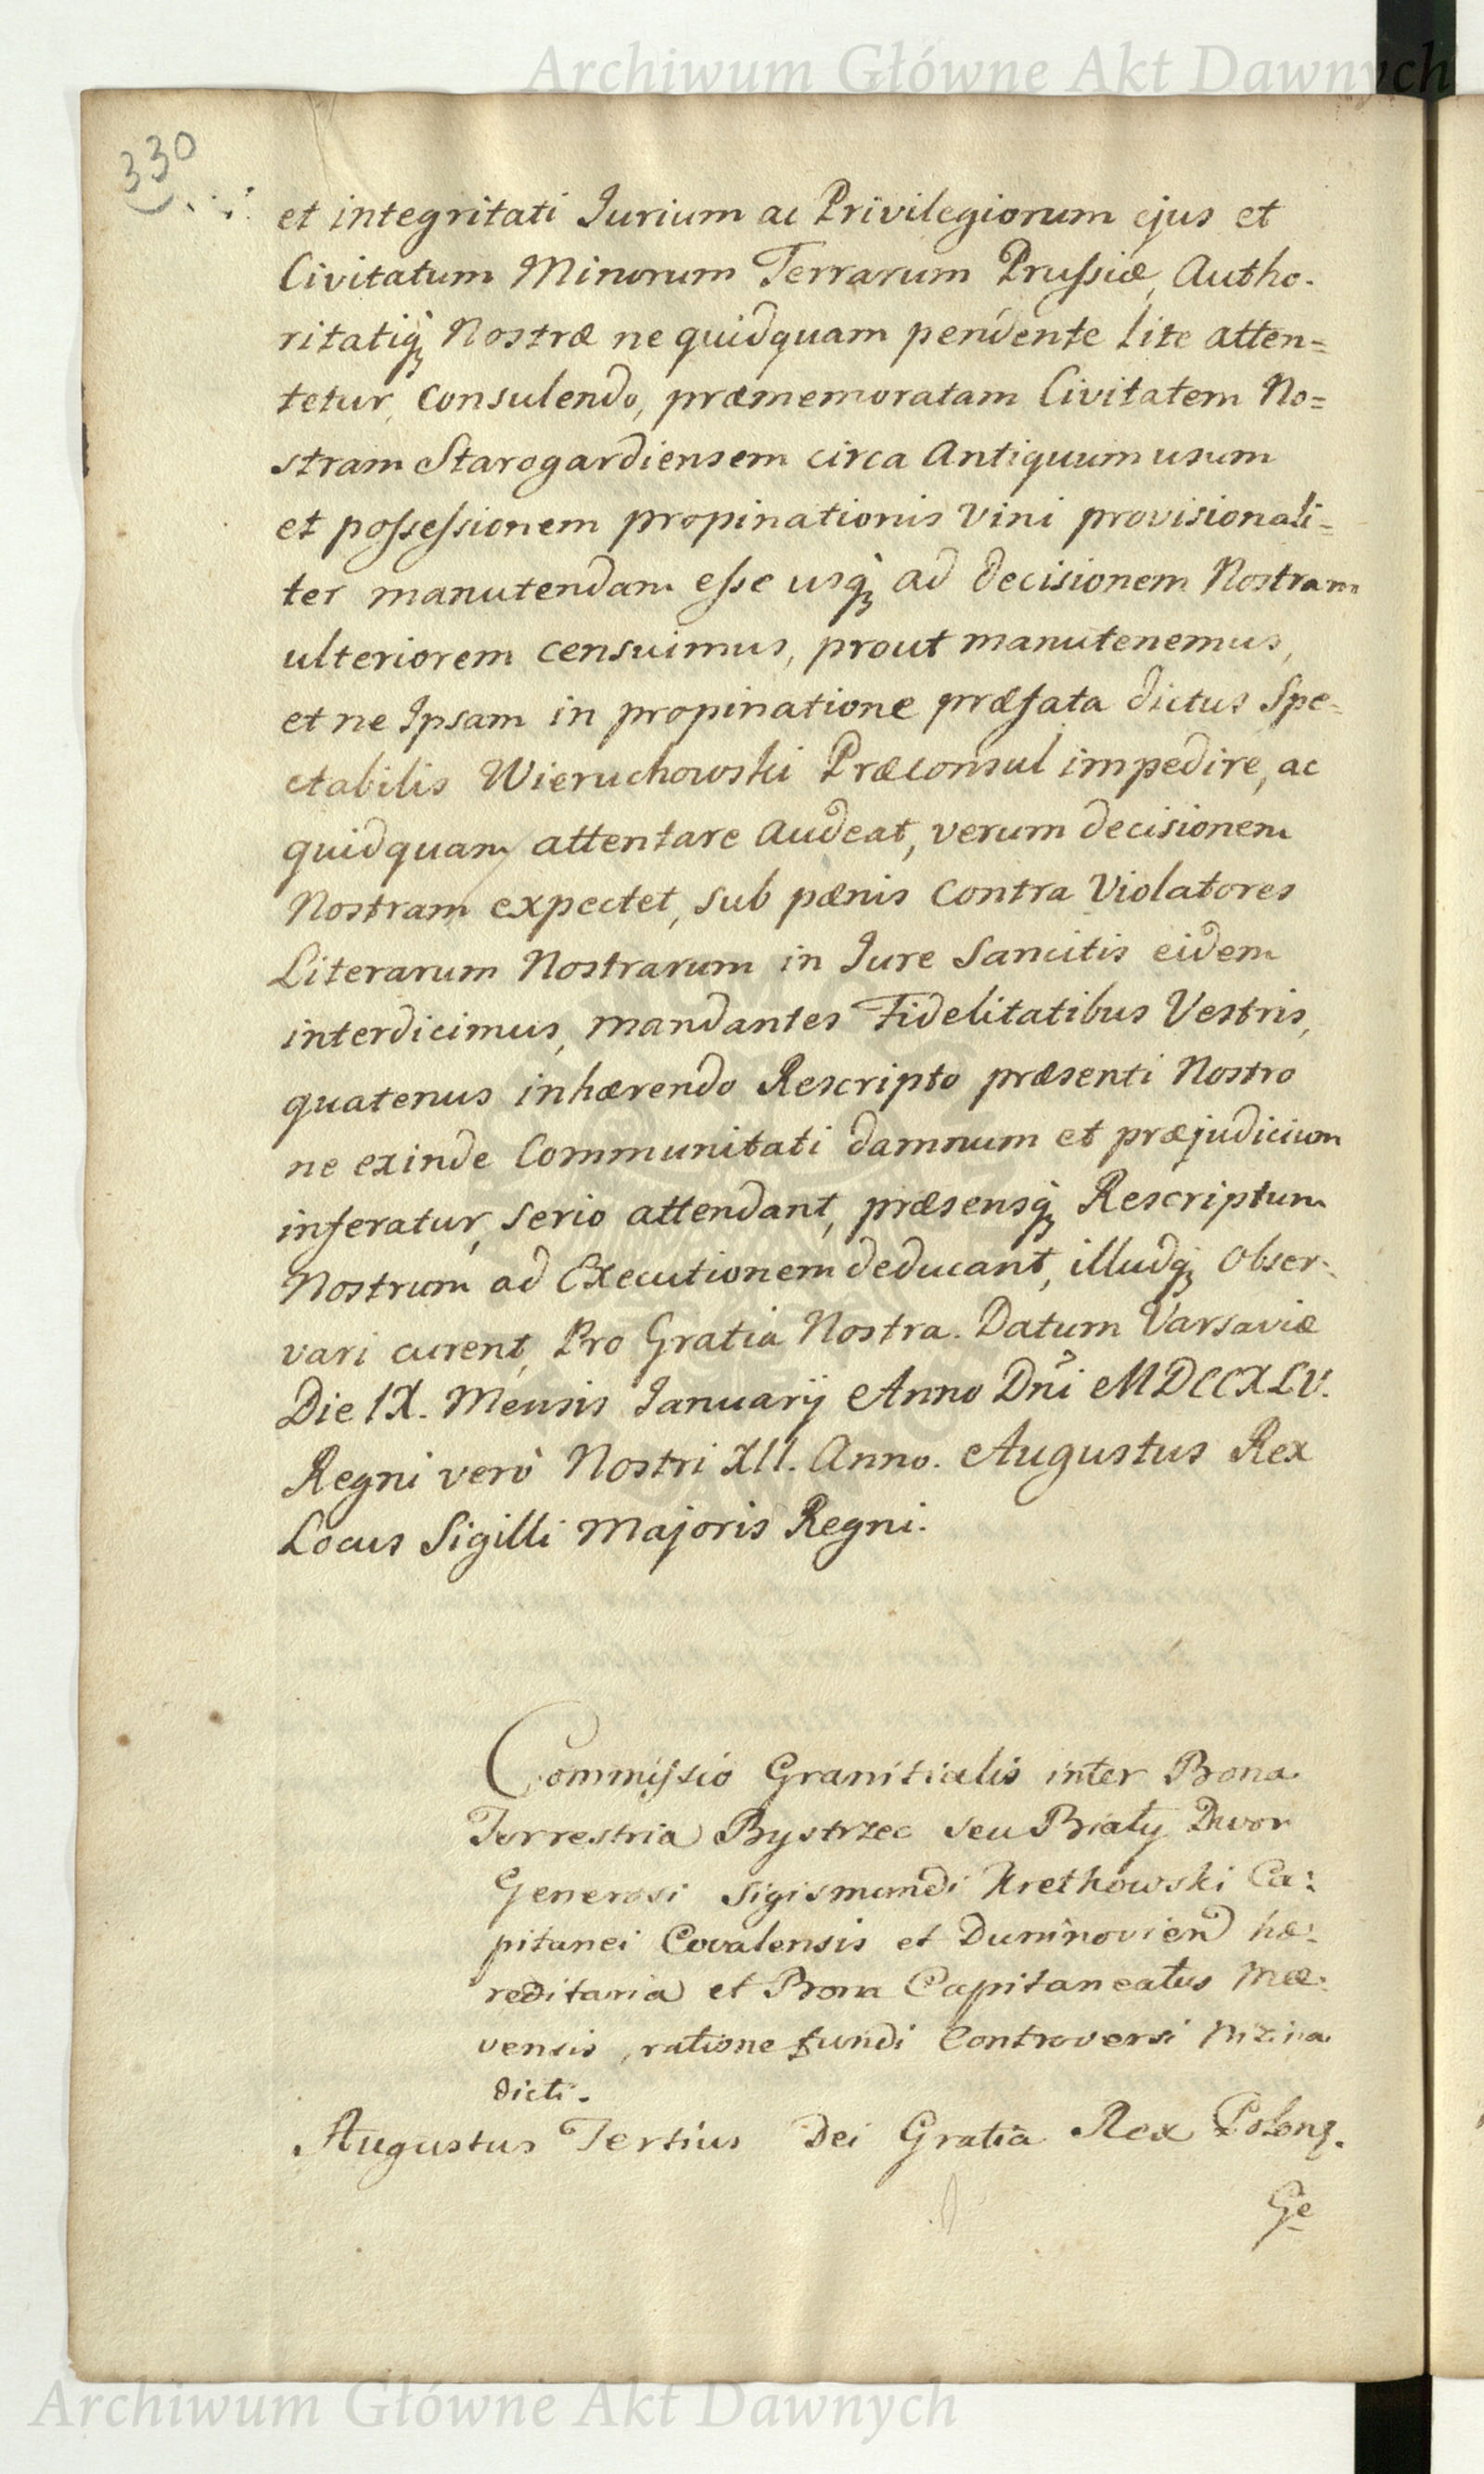 Archiwum Główne Akt Dawnych
330
et integritati Jurium ac Privilegiorum ejus et
Civitatum Minorum Terrarum Prussiæ, Autho-
ritatiq; Nostræ ne quidquam pendente lite atten=
tetur, consulendo, præmemoratam Civitatem No=
stram Starogardiensem circa Antiquum usum
et possessionem propinationis Vini provisionali=
ter manutendam esse usq; ad decisionem Nostram
ulteriorem censuimus, prout manutenemus,
et ne Ipsam in propinatione præfata dictus Spe=
ctabilis Wieruchowski Præconsul impedire, ac
quidquam attentare audeat, verum decisionem
Nostram expectet, sub pænis contra Violatores
Literarum Nostrarum in Jure Sancitis eidem
interdicimus, mandantes Fidelitatibus Vestris,
quatenus inhærendo Rescripto præsenti Nostro
ne exinde Communitati damnum et præjudicium
inferatur, serio attendant, præsensq; Rescriptum
Nostrum ad Executionem deducant, illudq; obser-
vari curent, Pro Gratia Nostra. Datum Varsaviæ
Die IX. Mensis Januarij Anno Dñi MDCCXLV.
Regni verò Nostri XII. Anno. Augustus Rex
Locus Sigilli Majoris Regni.
Commissio Granitialis inter Bona
Terrestria Bystrzec seu Biały Dwor
Generosi Sigismundi Krethowski Ca:
pitanei Covalensis et Duninovien hæ:
reditaria et Bona Capitaneatus Mæ:
vensis, ratione fundi Controversi Nizina
dicti.
Augustus Tertius Dei Gratia Rex Polonq.
Ge
Archiwum Główne Akt Dawnych